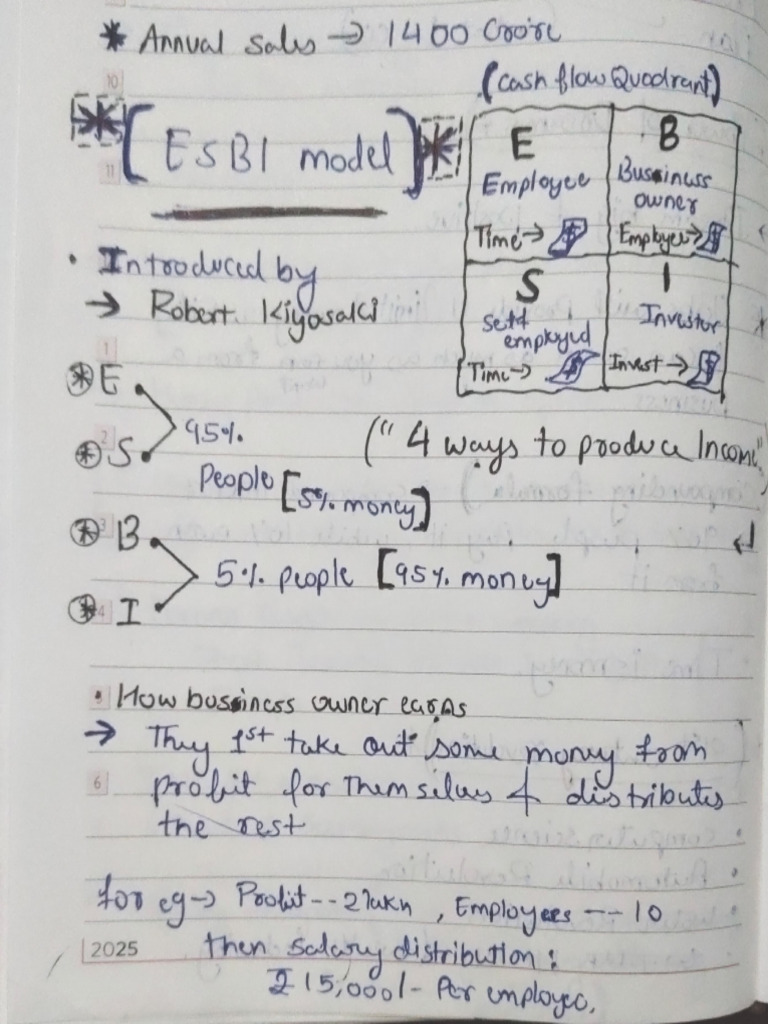 * Annual Sales → 1400 Crore
(Cash flow Quadrant)
* [ESBI model] *
E
Employee
Time →
B
Bussiness
owner
Employee →
S
Self
employed
Time →
I
Investor
Invest →
• Introduced by
→ Robert Kiyosaki
* E
* S
95%
People [5% money]
("4 ways to produce Income")
* B
* I
5% people [95% money]
• How bussiness owner earns
→ They 1st take out some money from
profit for themselves & distributes
the rest
for eg → Profit -- 2 lakh, Employees -- 10
then salary distribution:
₹ 15,000/- Per employee,
10
11
1
2
3
4
6
2025